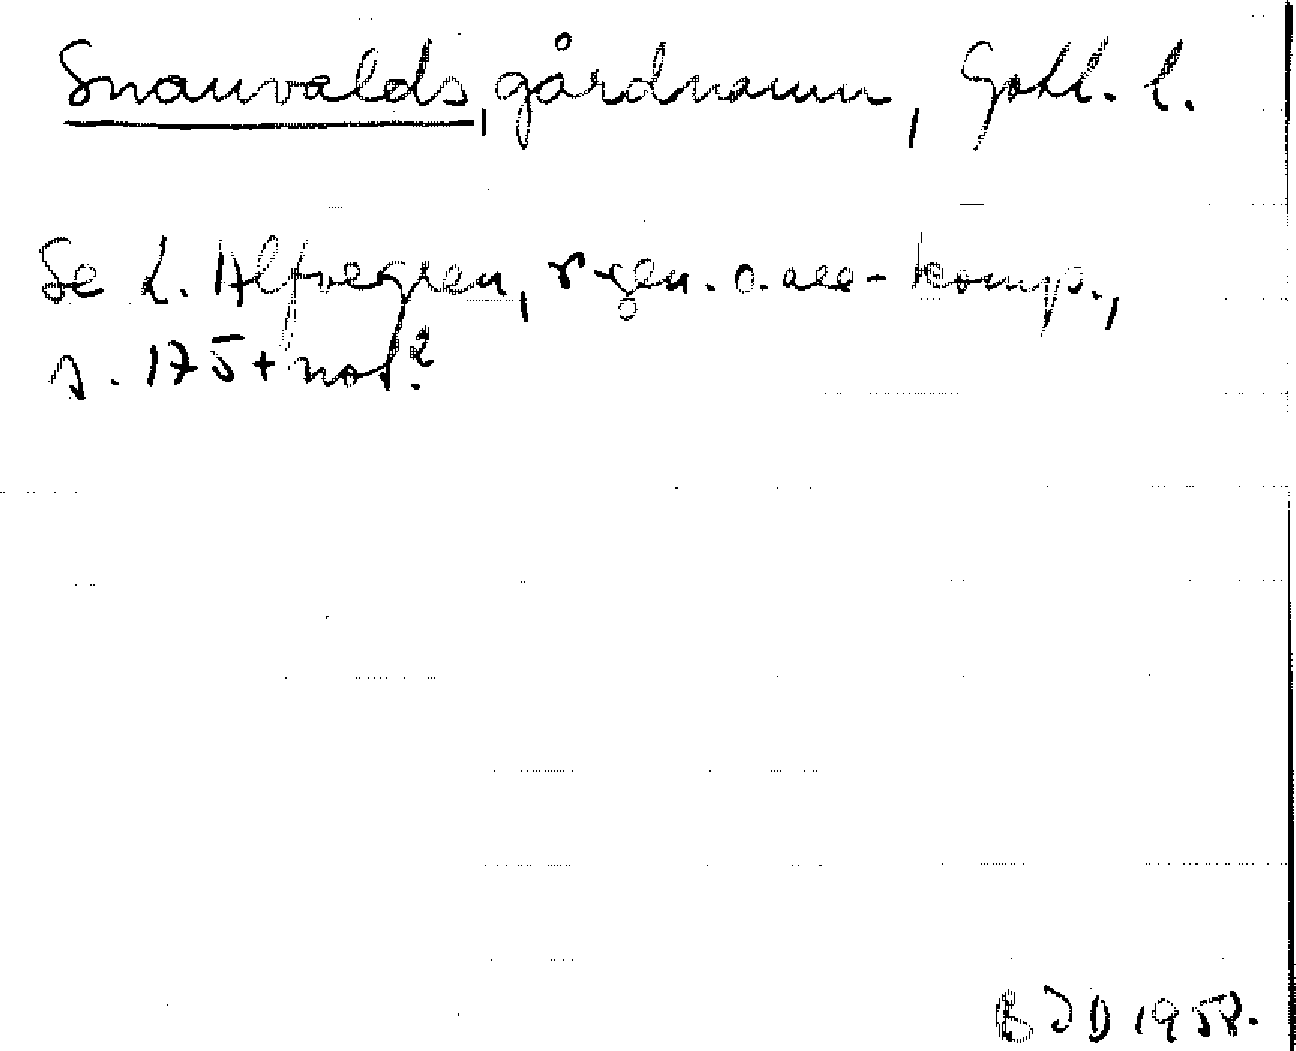 Snauvalds, gårdnamn, Gotl. l.
Se L. Alfvegren, r-gen. o. ack-komp.,
s. 175 + not. 2
BJD 1958.